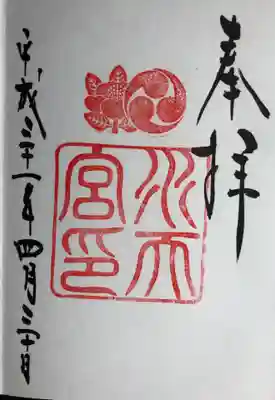 奉拝
水天
宮印
平成二十一年四月二十日